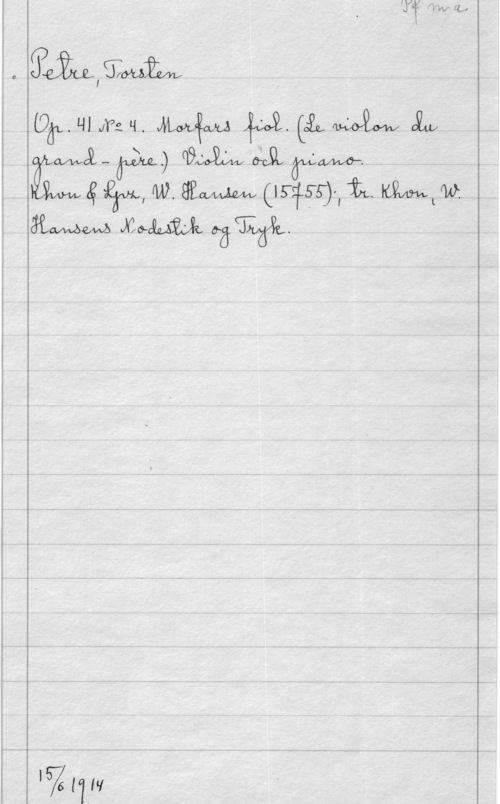 Pf m a
Petre, Torsten
Op. 41 Nº 4. Morfars fiol. (Le violon du
grand-père.) Violin och piano.
Khvn & Lpz, W. Hansen (15755); tr. Khvn, W.
Hansens Nodestik og Tryk.
15/6 1914